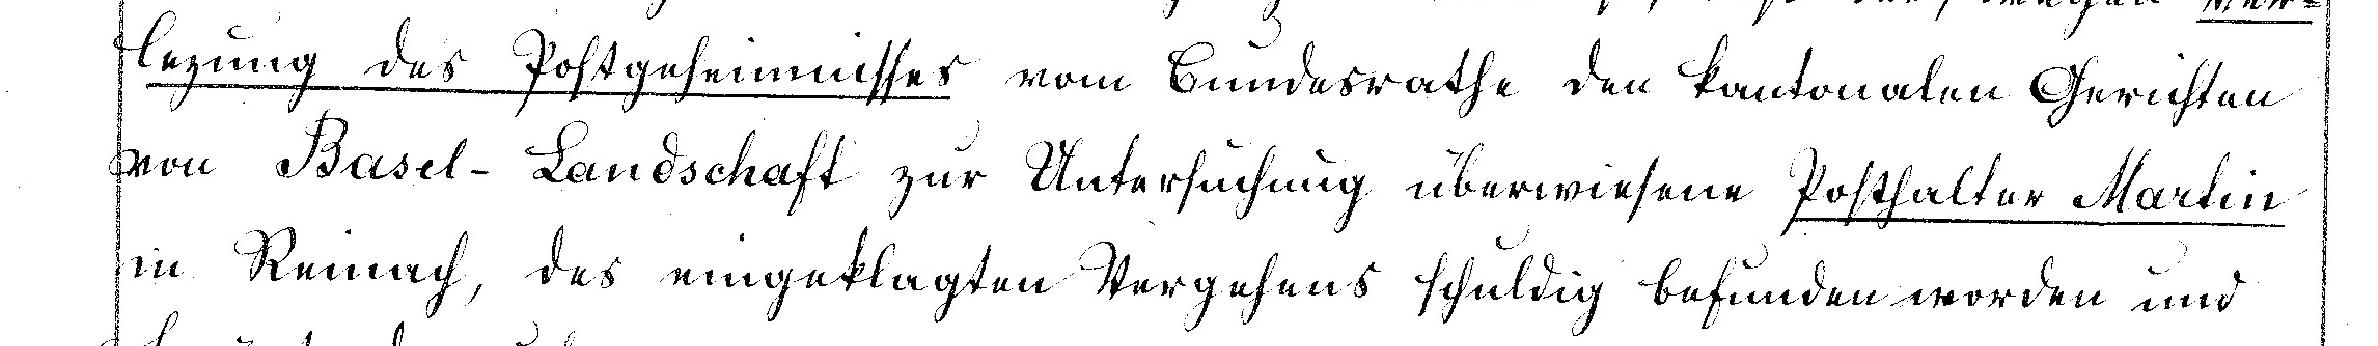 lezung des Postgeheimnisses vom Bundesrathe den kantonalen Gerichten
von Basel-Landschaft zur Untersuchung überwiesene Posthalter Martin
in Reinach, des eingeklagten Vergehens schuldig befunden worden und